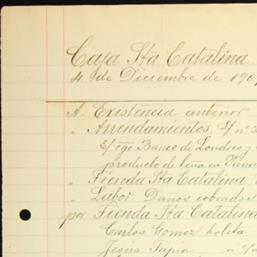 Caja Sta Catalina.
4 de Diciembre de 190
A. Existencia anterior
" Arrendamientos, S/n
S/ cgo Banco de Londres y
producto de leña en
" Tienda Sta Catalina
" Labor. Daños cobrados
por Tienda Sta Catalina
Carlos Gomez bolita
Jesús Tapia